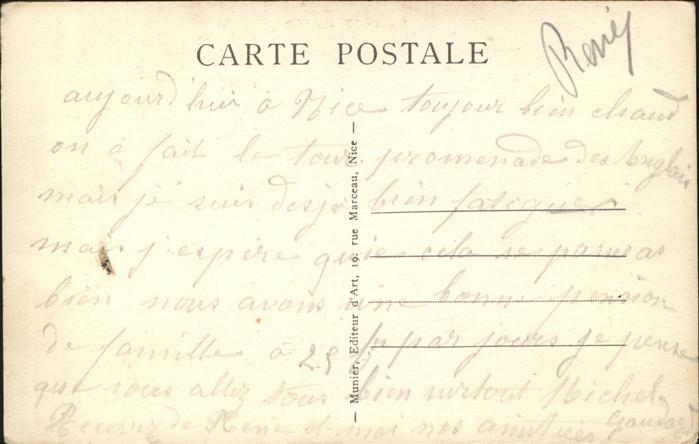 CARTE POSTALE
René
aujourd'hui à Nice toujour bien chaud
on à fait le tour promenade des Anglais
mais je suis desja bien fatiguer
mais j'espère quie cela se passeras
bien nous avons une bonne pension
de famille à 25 fr par jours je pense
que vous allez tous bien surtout Michel
Recevez de René et moi nos amitiées
— Munier, Editeur d'Art, 19, rue Marceau, Nice —